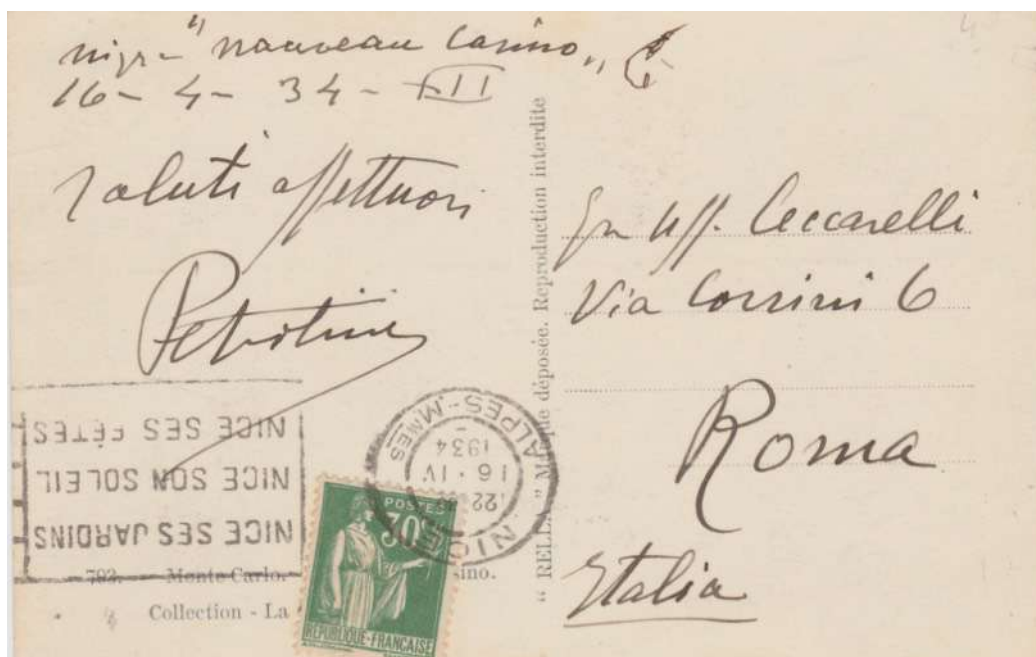 "nouveau Casino"
16 - 4 - 34 - XII
Saluti affettuosi
Petrolini
NICE SES JARDINS
NICE SON SOLEIL
NICE SES FÊTES
NICE
ALPES-MMES
22
16 · IV
1934
POSTES
30c
REPUBLIQUE-FRANÇAISE
792. Monte Carlo.
Collection - La
" RELLA " Marque déposée. Reproduction interdite
Gr Uff. Ceccarelli
Via Corsini 6
Roma
Italia